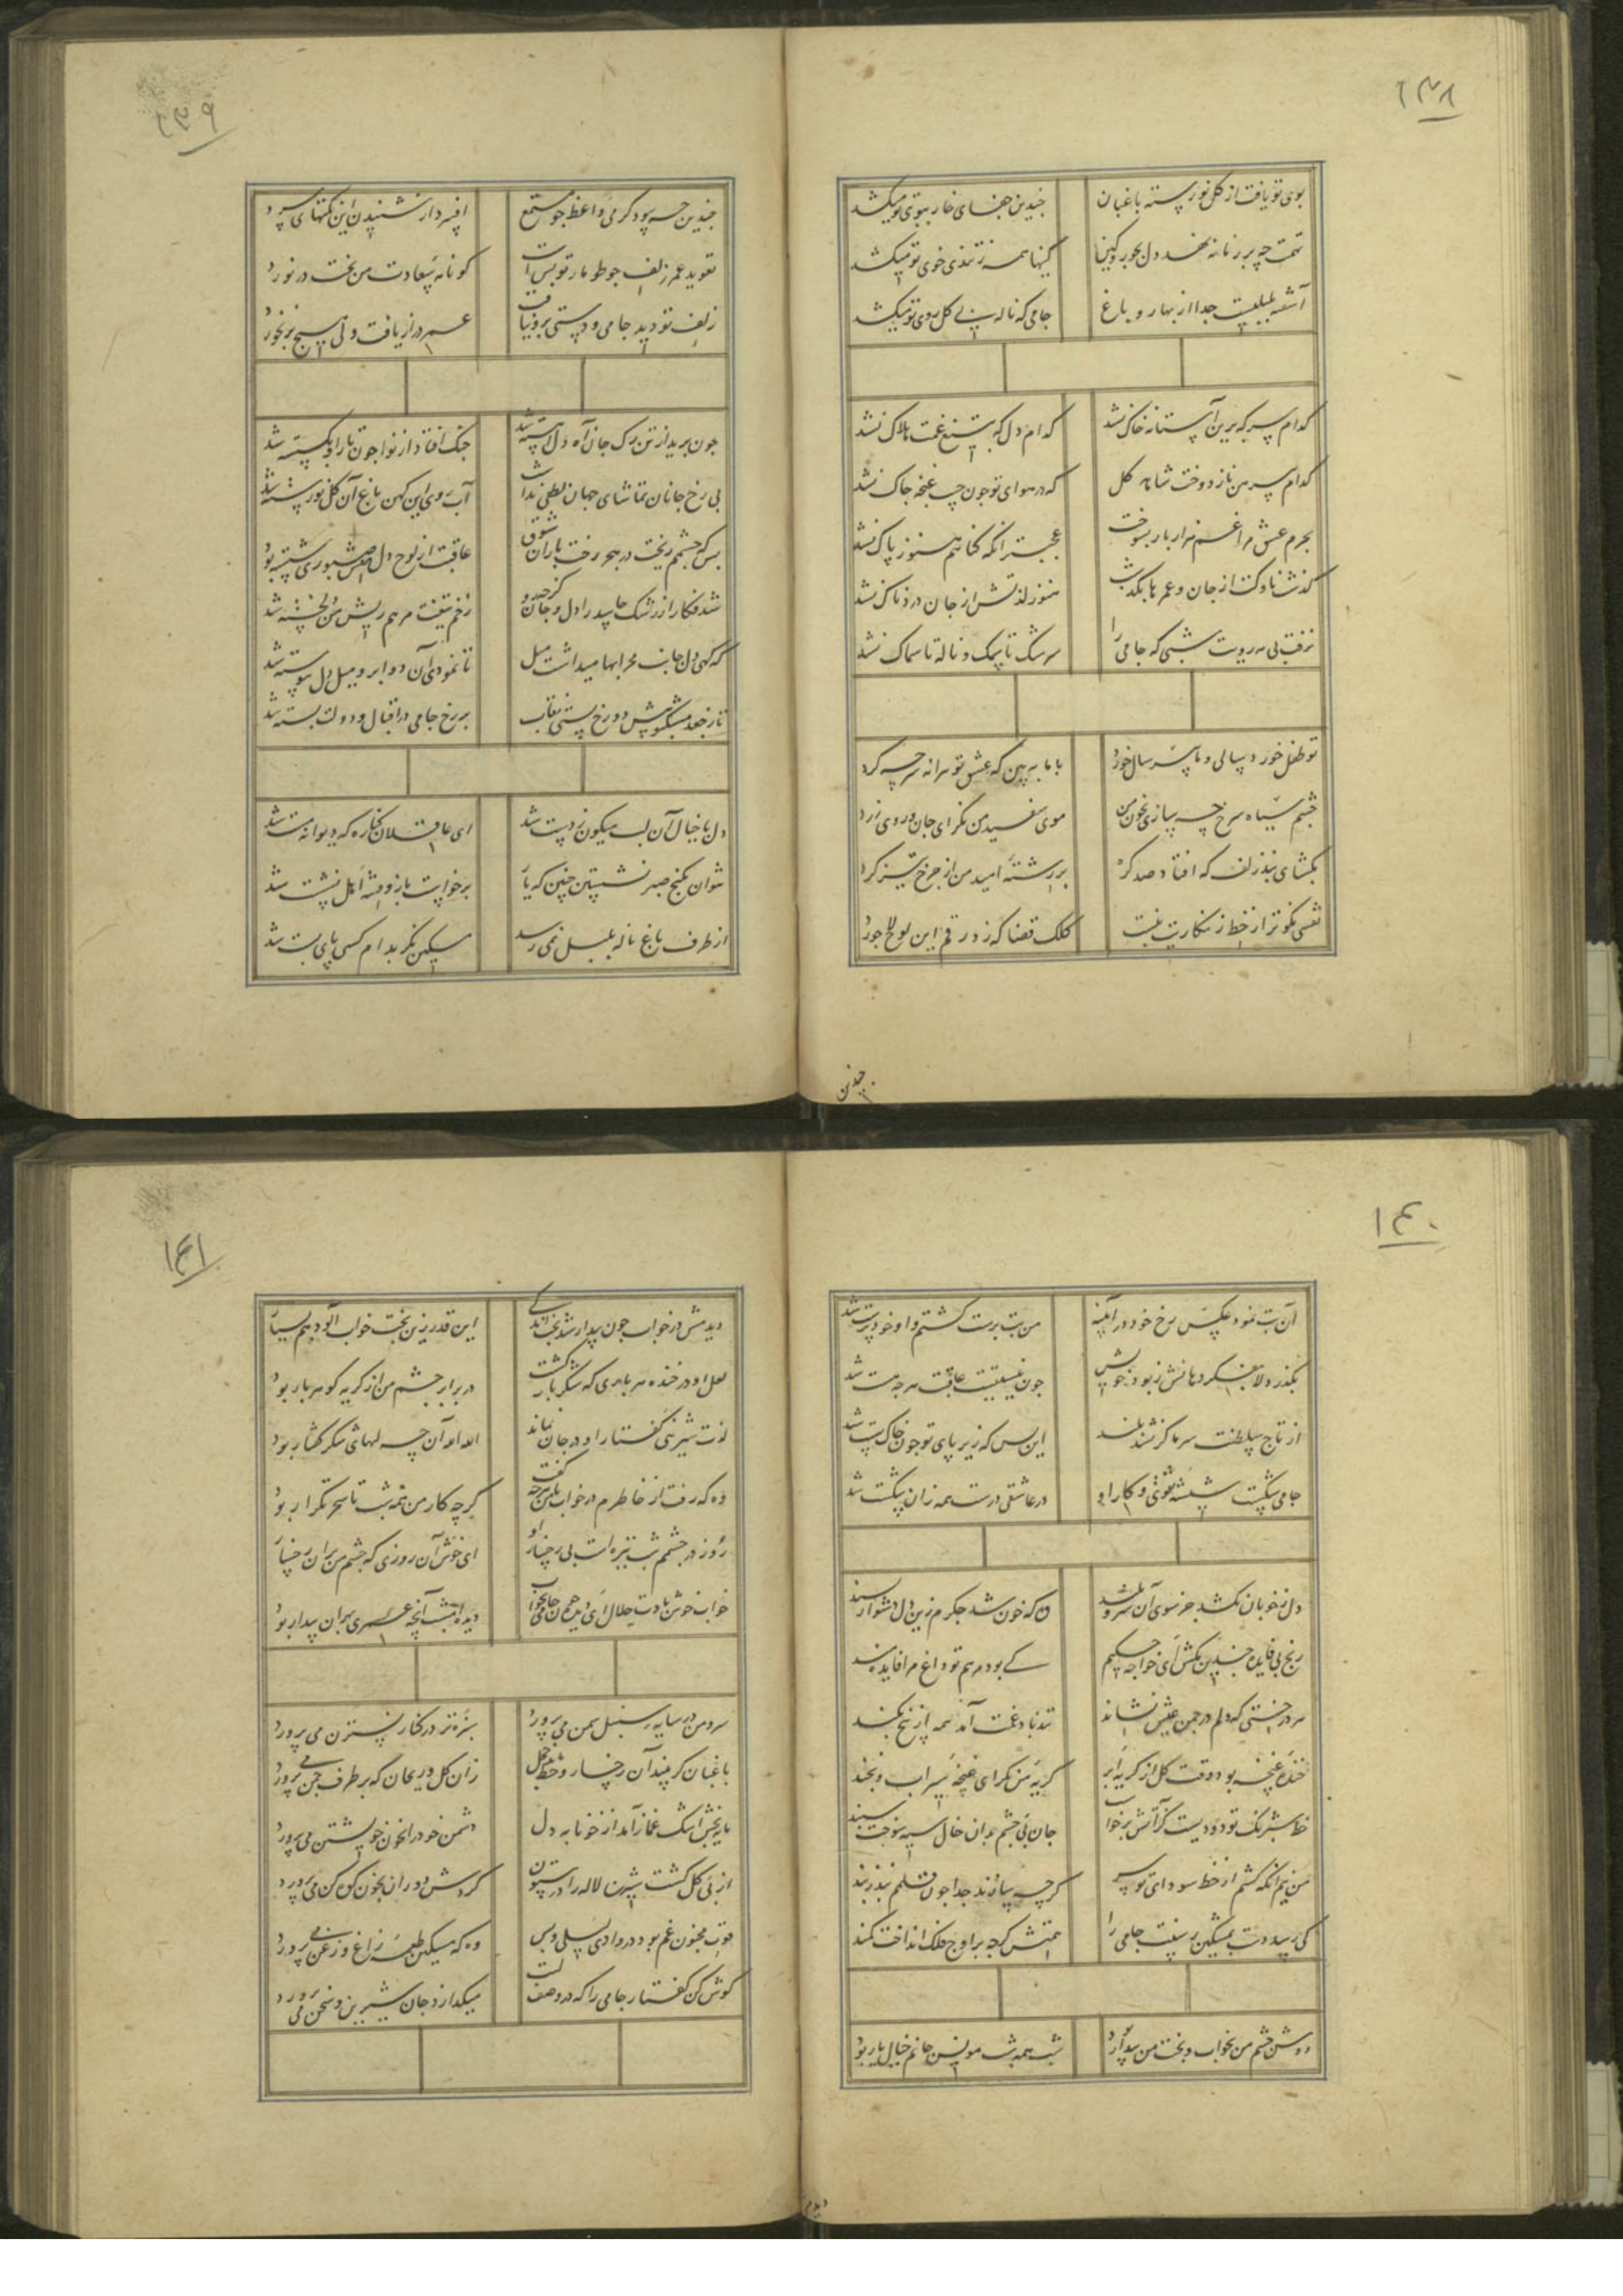 ۱۳۸
بوی تو یافت از گل نورسته باغبان چندین جفای خار ببوی تو میکشد
تهمت چه بر زمانه نهد دل بجور و کین اینها همه ز تندی خوی تو میکشد
آشفته بلبلیست جدا از بهار و باغ جامی که ناله بی گل روی تو میکشد
کدام سر که برین آستانه خاک نشد کدام دل که بتیغ غمت هلاک نشد
کدام پیرهن ناز دوخت شاهد گل که در هوای تو چون جیب غنچه چاک نشد
بجرم عشق مرا غم هزار بار بسوخت عجبتر آنکه گناهم هنوز پاک نشد
گذشت ناوکت از جان و عمرها بگذشت هنوز لذتش از جان دردناک نشد
نرفت بی مه رویت شبی که جامی را سرشک تا بسمک و ناله تا سماک نشد
تو طفل خورد سالی و ما پیر سال خورد با ما ببین که عشق تو میرانه سر چه کرد
چشم سیاه سرخ چه سازی بخون من موی سفید من نگر ای جان و روی زرد
بگشای بند زلف که افتاد صد گره بر رشته امید من از چرخ تیز گرد
نقشی نکوتر از خط زنگاریت نبست کلک قضا که زد رقم این لوح لاجورد
چندین
۱۳۹
چندین چه سود گرمی واعظ چو مستمع افسرده دار شنیدن این نکتهای سرد
تعوید عمر زلف چو طومار تو بس است گو نامه سعادت من بخت در نورد
زلف تو دید جامی و دستی برو نیافت عمر دراز یافت ولی هیچ بر نخورد
چون برید از تن رگ جان آه دل آهسته شد چنگ افتاد از نوا چون تار او بگسسته شد
بی رخ جانان تماشای جهان لطفی نداشت آب روی این کهن باغ آن گل نورسته شد
بس که چشمم ریخت در هجر رخت باران شوق عاقبت از لوح دل نقش صبوری شسته بود
شد فکار از رشک حاسد را دل و جان گرچه زخم تیغت مرهم ریش من دلخسته شد
گه گهی دل جانب محرابها میداشت میل تا نمودی آن دو ابرو میل دل پیوسته شد
تا ز جعد مشکبویش دو رخ بستی نقاب بر رخ جامی در اقبال و دولت بسته شد
دل با خیال آن لب میگون ز دست شد ای عاقلان کناره که دیوانه مست شد
نتوان بکنج صبر نشستن چنین که یار برخواست باز و فتنه اهل نشست شد
از طرف باغ ناله بلبل نمی رسد مسکین مگر بدام کسی پای بست شد
۱۴۰
آن بت نمود عکس رخ خود در آینه من بت پرست گشتم و او خود پرست شد
بگذر دلا بفکر دهانش ز بود خویش چون نیستیست عاقبت هر چه هست شد
از تاج سلطنت سر ما گر نشد بلند این بس که زیر پای تو چون خاک پست شد
جامی شکست شیشه تقوی و کار او در عاشقی درست همه زان شکست شد
دل ز خوبان نکشد جز سوی آن سرو بلند وه که خون شد جگرم زین دل دشوار پسند
رنج بی فایده چندین مکش ای خواجه حکیم کی بود مرهم تو داغ مرا فایده مند
هر درختی که دلم در چمن عیش نشاند تند باد غمت آمد همه از بیخ بکند
خنده غنچه بود وقت گل از گریه ابر گریه من نگر ای غنچه سیراب و بخند
خط شبرنگ تو دودیست کز آتش برخواست جان بی چشم بدان خال سیه سوخت سپند
من نیم آنکه کشم از خط سودای تو سر گر چه سازند جدا چون قلمم بند ز بند
کی رسد دست بمشکین رسنت جامی را همتش گرچه بر اوج فلک انداخت کمند
دوش چشم من بخواب و بخت من بیدار بود شب همه شب مونس جانم خیال یار بود
دیدمش
۱۴۱
دیدمش در خواب چون بیدار شد بختم این قدر زین بخت خواب آلود هم بسیار
لعل او در خنده هر باری که شکر بار گشت در برابر چشم من از گریه گوهر بار بود
لذت شیرینی گفتار او در جان بماند الله الله آن چه لبهای شکر گفتار بود
وه که رفت از خاطرم در خواب با من هر چه گفت گرچه کار من همه شب تا سحر تکرار بود
روز در چشمم شب تیره است بی رخسار او ای خوش آن روزی که چشم من بران رخسار
خواب خوش بادت حلال ای دیده چون جامی بخواب دیده امشب آنچه عمری بهر آن بیدار بود
سرو من در سایه سنبل سمن می پرورد سبزه تر در کنار نسترن می پرورد
باغبان گر بیند آن رخسار و خط خجل زان گل و ریحان که بر طرف چمن می پرورد
مایه بخش اشک غماز آمد از خونابه دل دشمن خود را بخون خویشتن می پرورد
از پی گلگشت شیرین لاله را در بیستون گردش دوران بخون کوه کن می پرورد
قوت مجنون غم بود در وادی لیلی و بس وه که مسکین طعمه زاغ و زغن می پرورد
گوش کن گفتار جامی را که در وصف لبت میگدازد جان شیرین و سخن می پرورد